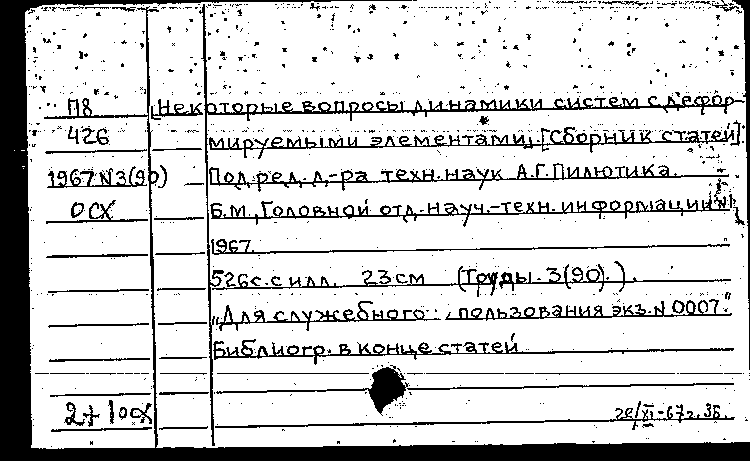 П8 [Некоторые вопросы динамики систем с дефор-
426 мируемыми элементами]. [Сборник статей].
1967 N3(90) Под ред. д-ра техн. наук А.Г. Пилютика.
ОСХ Б.м., Головной отд. науч.-техн. информации
1967.
526с. с илл. 23 см (Труды. 3(90).).
"Для служебного пользования экз. N 0007."
Библиогр. в конце статей
2+1осх 28/XI-67г.